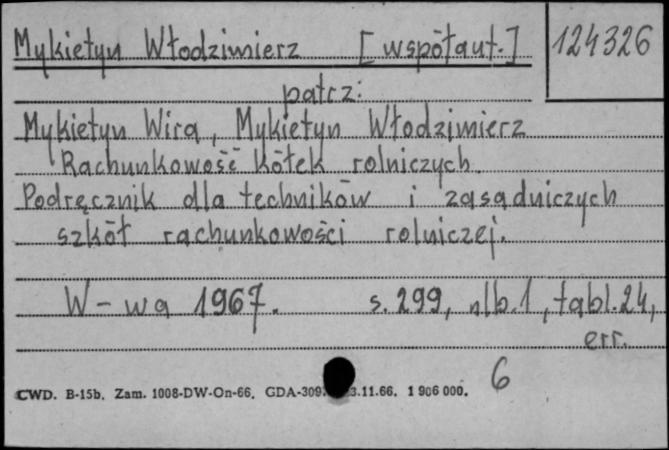 Mykietyn Włodzimierz [współaut.] 124326
patrz:
Mykietyn Wira, Mykietyn Włodzimierz
Rachunkowość kółek rolniczych.
Podręcznik dla techników i zasadniczych
szkół rachunkowości rolniczej.
W-wa 1967. s. 299, nlb. 1, tabl. 24,
err.
6
CWD. B-15b. Zam. 1008-DW-On-66. GDA-309. 3.11.66. 1 906 000.